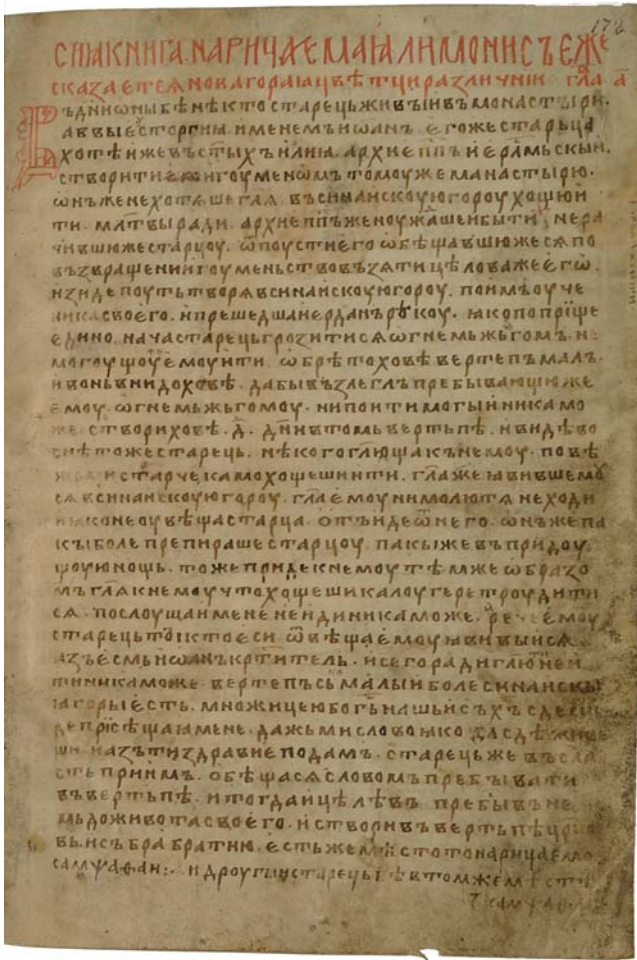 178
СИꙖ КНИГА. НАРИЧАЕМАꙖ ЛИМОНИСЪ ЕЖЕ
сказаетсѧ новаꙗ гораꙗ цвѣтци различнїи · гла а҃
Въ дн҃и ѡны бѣ нѣкто старець живыи въ монастыри.
аввы есторгиꙗ. именемъ иѡанъ. егоже старьца
хотѣ иже въ ст҃ыхъ илиꙗ. архиеп҃пъ иер҃лмьскыи.
створити игоуменѡмъ томоуже манастырю.
ѡнъ же не хотѧше гл҃ѧ. въ синаискоую гороу хощю и
ти. мл҃твы ради. архиеп҃пъ же ноужаше и быти. не ра
чившю же старцоу. ѿпоусти его ѡбѣщавшюжесѧ по
възвращении гоуменьство възѧти цѣловаже его.
изиде поуть творѧ в синаискоую гороу. поимъ оуче
ника своего. и прешедша иердань рѣкоу. ꙗко поприще
едино. нача старець грозитисѧ ѡгнемь жьгомъ. не
могоущоу емоу ити. ѡбрѣтоховѣ вертепъ малъ.
и вонь внидоховѣ. да бы възлеглъ пребывающю же
емоу. ѡгнемь жьгомоу. ни поити могыи никамо
же. створиховѣ. д. дн҃и в томь вертьпѣ. и видѣ во
снѣ тоже старець. нѣкого гл҃юща къ немоу. повѣ
старче камо хощеши ити. гл҃а же ꙗвившемо
сѧ в синаискоую гороу. гл҃а емоу ни молютѧ не ходи
не оувѣща старца. отъиде ѿ него. ѡнъ же па
кы боле препираше старцоу. пакы же въ придоу
щоую нощь. тоже приде к немоу тѣмже ѡбразо
мъ гл҃ѧ к немоу что хощеши калоугере троудити
сѧ. послоушаи мене не иди никаможе. рече емоу
старець ты кто еси. ѿвѣща емоу ꙗвивыисѧ
азъ есмь иѡанъ кр҃титель. и сего ради гл҃ю не и
ти никаможе. вертепъ сь малыи боле синаискы
ꙗ горы есть. множицею богъ нашь ис҃ъ х҃ъ сде
де присѣщаꙗ мене. дажь ми слово ꙗко сдѣ живе
ши. и азъ ти здравие подамъ. старець же въ сла
сть приимъ. обѣщасѧ словомъ пребывати
въ вертьпѣ. и тогда ицѣлѣвъ пребывъ не
мь до живота своего. и створивъ вертьпѣ цр҃ко
вь и събра братию. есть же мѣсто то нарицаемо
самъфаѳан: и дроугыи старець бѣ в томже мѣстѣ